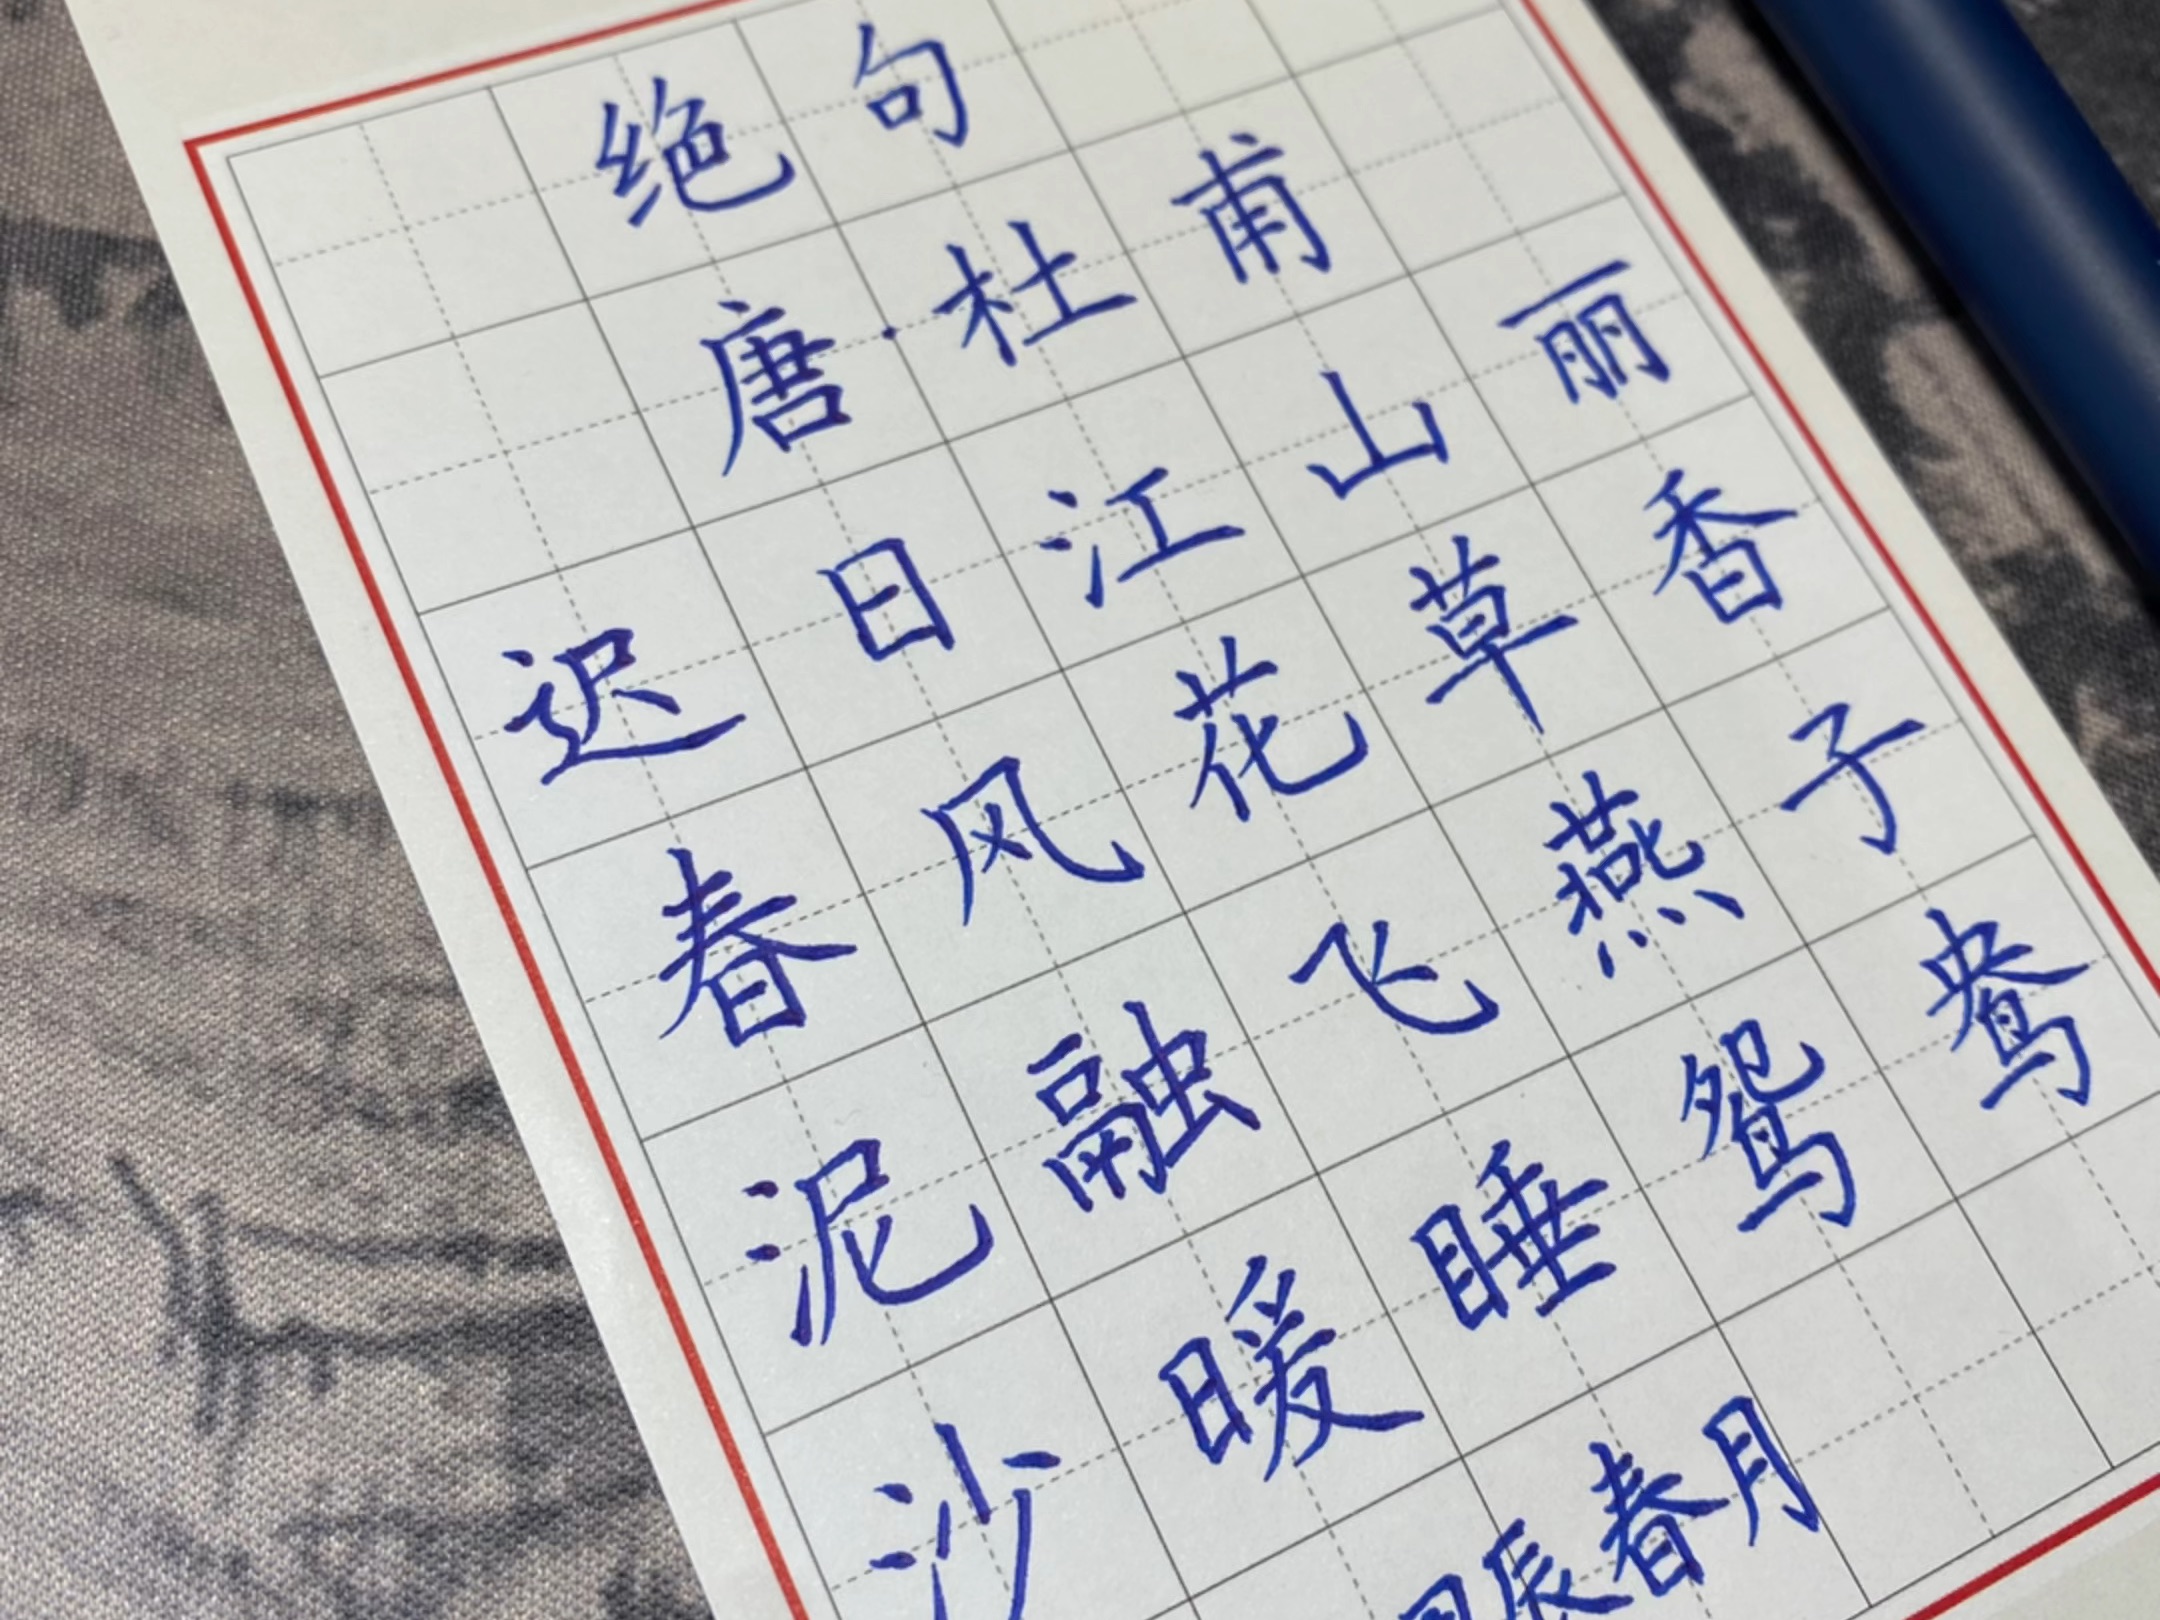 绝句
唐·杜甫
迟日江山丽
春风花草香
泥融飞燕子
沙暖睡鸳鸯
辰春月